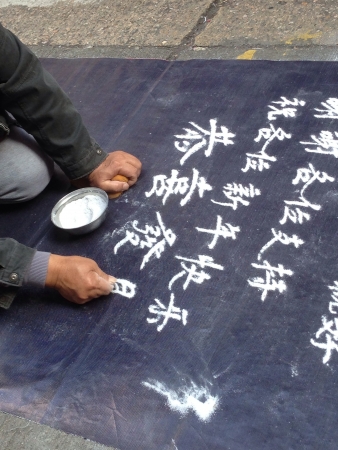 谢谢各位支持
祝各位新年快乐
恭喜發